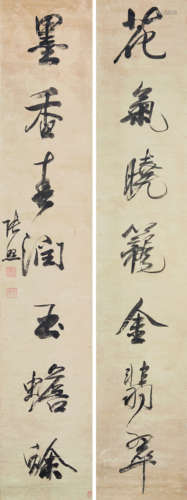 花氣曉籠金翡翠
墨香春潤玉蟾蜍
張照